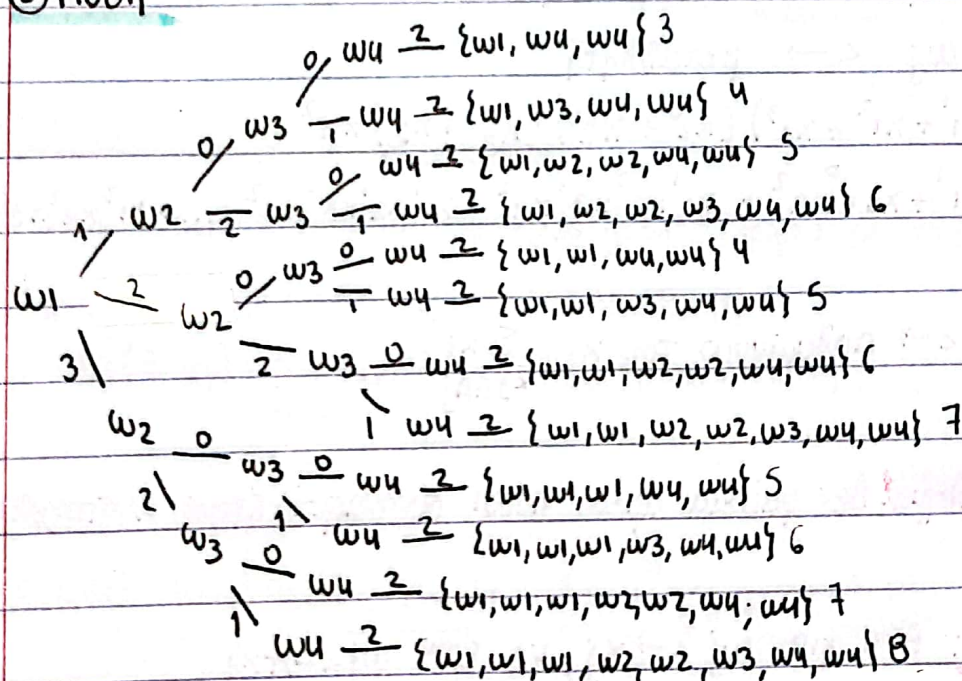 0 w4 2 {w1, w4, w4} 3
0 w3 1 w4 2 {w1, w3, w4, w4} 4
0 w4 2 {w1, w2, w2, w4, w4} 5
1 w2 2 w3 1 w4 2 {w1, w2, w2, w3, w4, w4} 6
0 w3 0 w4 2 {w1, w1, w4, w4} 4
w1 2 w2 1 w4 2 {w1, w1, w3, w4, w4} 5
3 2 w3 0 w4 2 {w1, w1, w2, w2, w4, w4} 6
1 w4 2 {w1, w1, w2, w2, w3, w4, w4} 7
w2 0 w3 0 w4 2 {w1, w1, w1, w4, w4} 5
2 1 w4 2 {w1, w1, w1, w3, w4, w4} 6
w3 0 w4 2 {w1, w1, w1, w2, w2, w4, w4} 7
1 w4 2 {w1, w1, w1, w2, w2, w3, w4, w4} 8